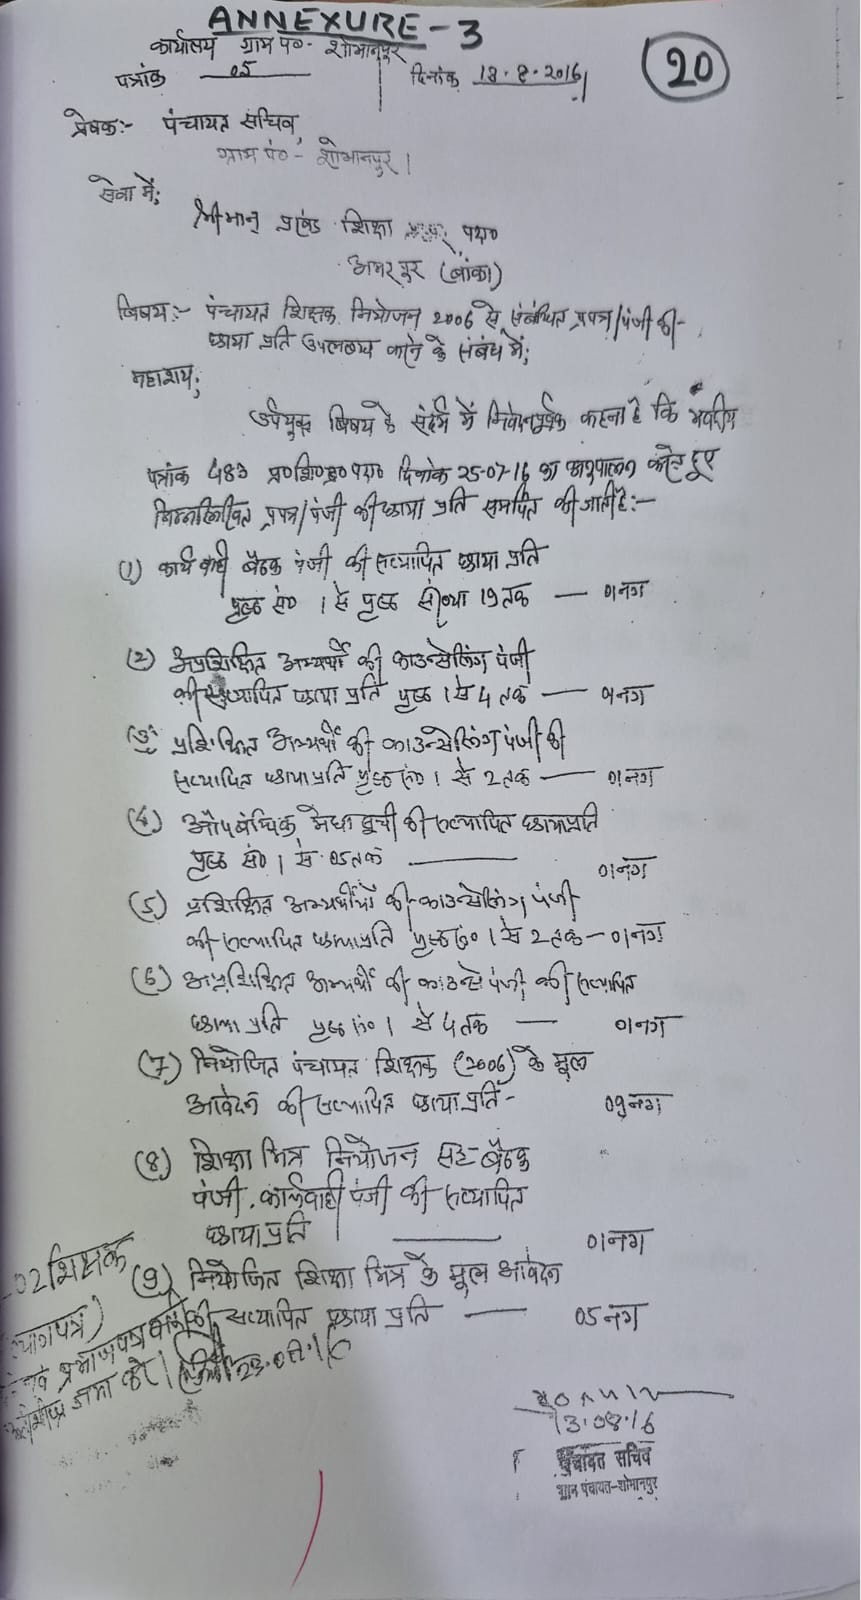 ANNEXURE-3
20
कार्यालय ग्राम पं०- शोभानपुर
पत्रांक 05 दिनांक 13.8.2016
प्रेषक:- पंचायत सचिव,
ग्राम पं०- शोभानपुर।
सेवा में;
श्रीमान् प्रखंड शिक्षा पदा०
अमरपुर (बांका)
विषय:- पंचायत शिक्षक नियोजन 2006 से संबंधित प्रपत्र/पंजी की-
छाया प्रति उपलब्ध कराने के संबंध में;
महाशय;
उर्पयुक्त विषय के संदर्भ में निवेदनपूर्वक कहना है कि भवदीय
पत्रांक 483 प्र०शि०प्र०पदा० दिनांक 25-07-16 का अनुपालन करते हुए
निम्नलिखित प्रपत्र/पंजी की छाया प्रति समर्पित की जाती है:-
(1) कार्यवाही बैठक पंजी की सत्यापित छाया प्रति
पृष्ठ सं० 1 से पृष्ठ संख्या 19 तक — 01नग
(2) अप्रशिक्षित अभ्यर्थी की काउन्सेलिंग पंजी
की सत्यापित छाया प्रति पृष्ठ 1 से 4 तक — 01नग
(3) प्रशिक्षित अभ्यर्थी की काउन्सेलिंग पंजी की
सत्यापित छायाप्रति पृष्ठ सं० 1 से 2 तक — 01नग
(4) औपबंधिक मेधा सूची की सत्यापित छायाप्रति
पृष्ठ सं० 1 से 05 तक — 01नग
(5) प्रशिक्षित अभ्यर्थीयों की काउन्सेलिंग पंजी
की सत्यापित छायाप्रति पृष्ठ सं० 1 से 2 तक – 01नग
(6) अप्रशिक्षित अभ्यर्थी की काउन्से पंजी की सत्यापित
छाया प्रति पृष्ठ सं० 1 से 4 तक — 01नग
(7) नियोजित पंचायत शिक्षक (2006) के मूल
आवेदन की सत्यापित छायाप्रति- 09नग
(8) शिक्षा मित्र नियोजन सह-बैठक
पंजी. कार्यवाही पंजी की सत्यापित
छायाप्रति — 01नग
(9) नियोजित शिक्षा मित्र के मूल आवेदन
की सत्यापित छाया प्रति — 05नग
02 शिक्षक
13.08.16
पंचायत सचिव
ग्राम पंचायत-शोभानपुर